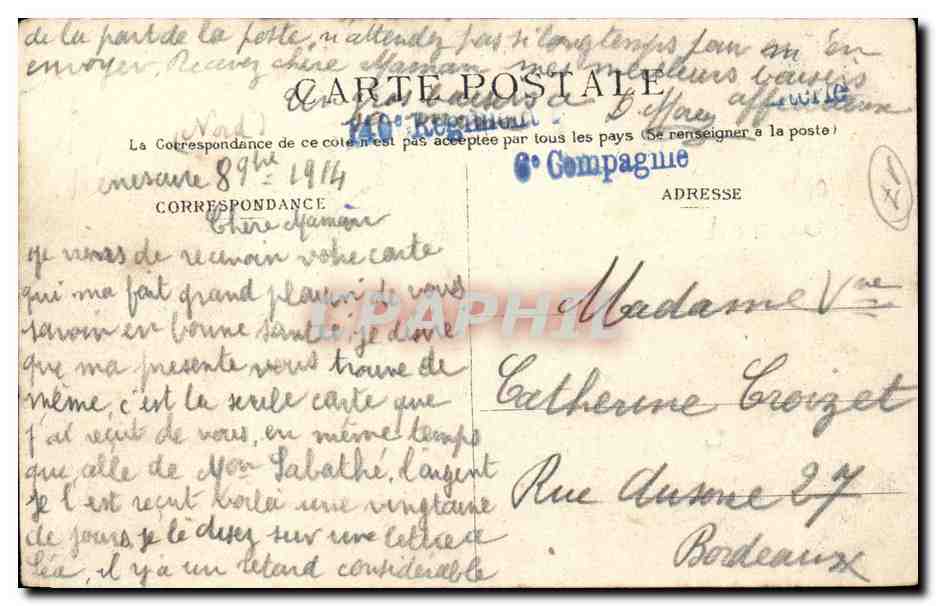 de la part de la poste, n'attendez pas si longtemps pour m'en
envoyer, Recevez chère Maman mes meilleurs baisers
CARTE POSTALE
baisers a D. affectueux
(Nord) 140e Régiment
La Correspondance de ce côté n'est pas acceptée par tous les pays (Se renseigner à la poste)
6e Compagnie
8 9bre 1914
CORRESPONDANCE
ADRESSE
Chère Maman
je viens de recevoir votre carte
qui ma fait grand plaisir de vous
savoir en bonne santé, je désire
que ma présente vous trouve de
même, c'est la seule carte que
j'ai reçut de vous, en même temps
que celle de Mon Sabathé, l'argent
je l'est reçut voilà une vingtaine
de jours, je le disez sur une lettre a
Léa, il y a un retard considérable
Madame Vve
Catherine Croizet
Rue Ausone 27
Bordeaux
CPAPHIL